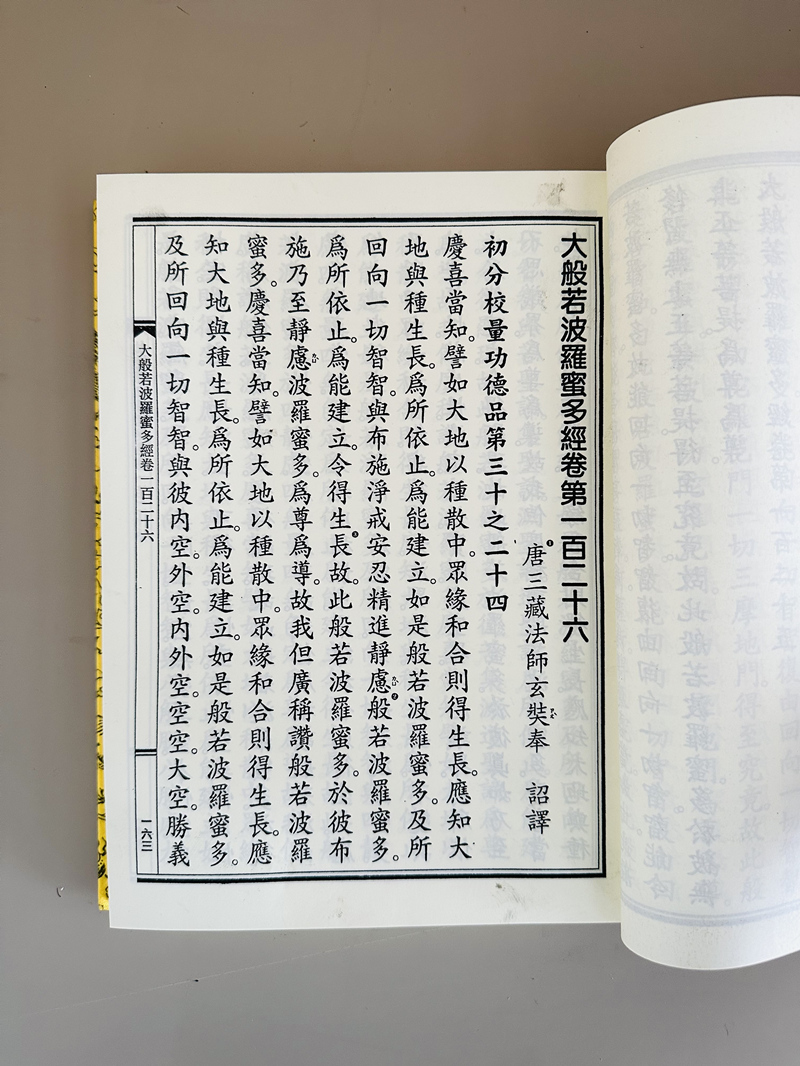 大般若波羅蜜多經卷第一百二十六
唐三藏法師玄奘奉　詔譯
初分校量功德品第三十之二十四
慶喜當知。譬如大地以種散中。眾緣和合則得生長。應知大
地與種生長。爲所依止。爲能建立。如是般若波羅蜜多。及所
回向一切智智。與布施淨戒安忍精進靜慮般若波羅蜜多。
爲所依止。爲能建立。令得生長故。此般若波羅蜜多。於彼布
施乃至靜慮波羅蜜多。爲尊爲導。故我但廣稱讚般若波羅
蜜多。慶喜當知。譬如大地以種散中。眾緣和合則得生長。應
知大地與種生長。爲所依止。爲能建立。如是般若波羅蜜多。
及所回向一切智智。與彼內空。外空。內外空。空空。大空。勝義
大般若波羅蜜多經卷一百二十六
一六三